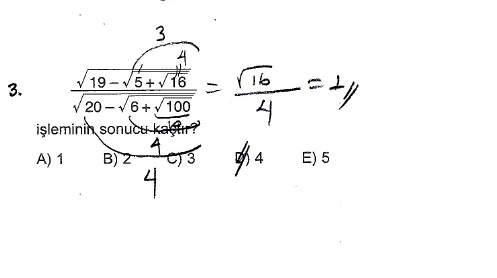 3
4
3. √19 − √5 + √16 / √20 − √6 + √100 = √16 / 4 = 1
işleminin sonucu kaçtır?
4
A) 1 B) 2 C) 3 D) 4 E) 5
4